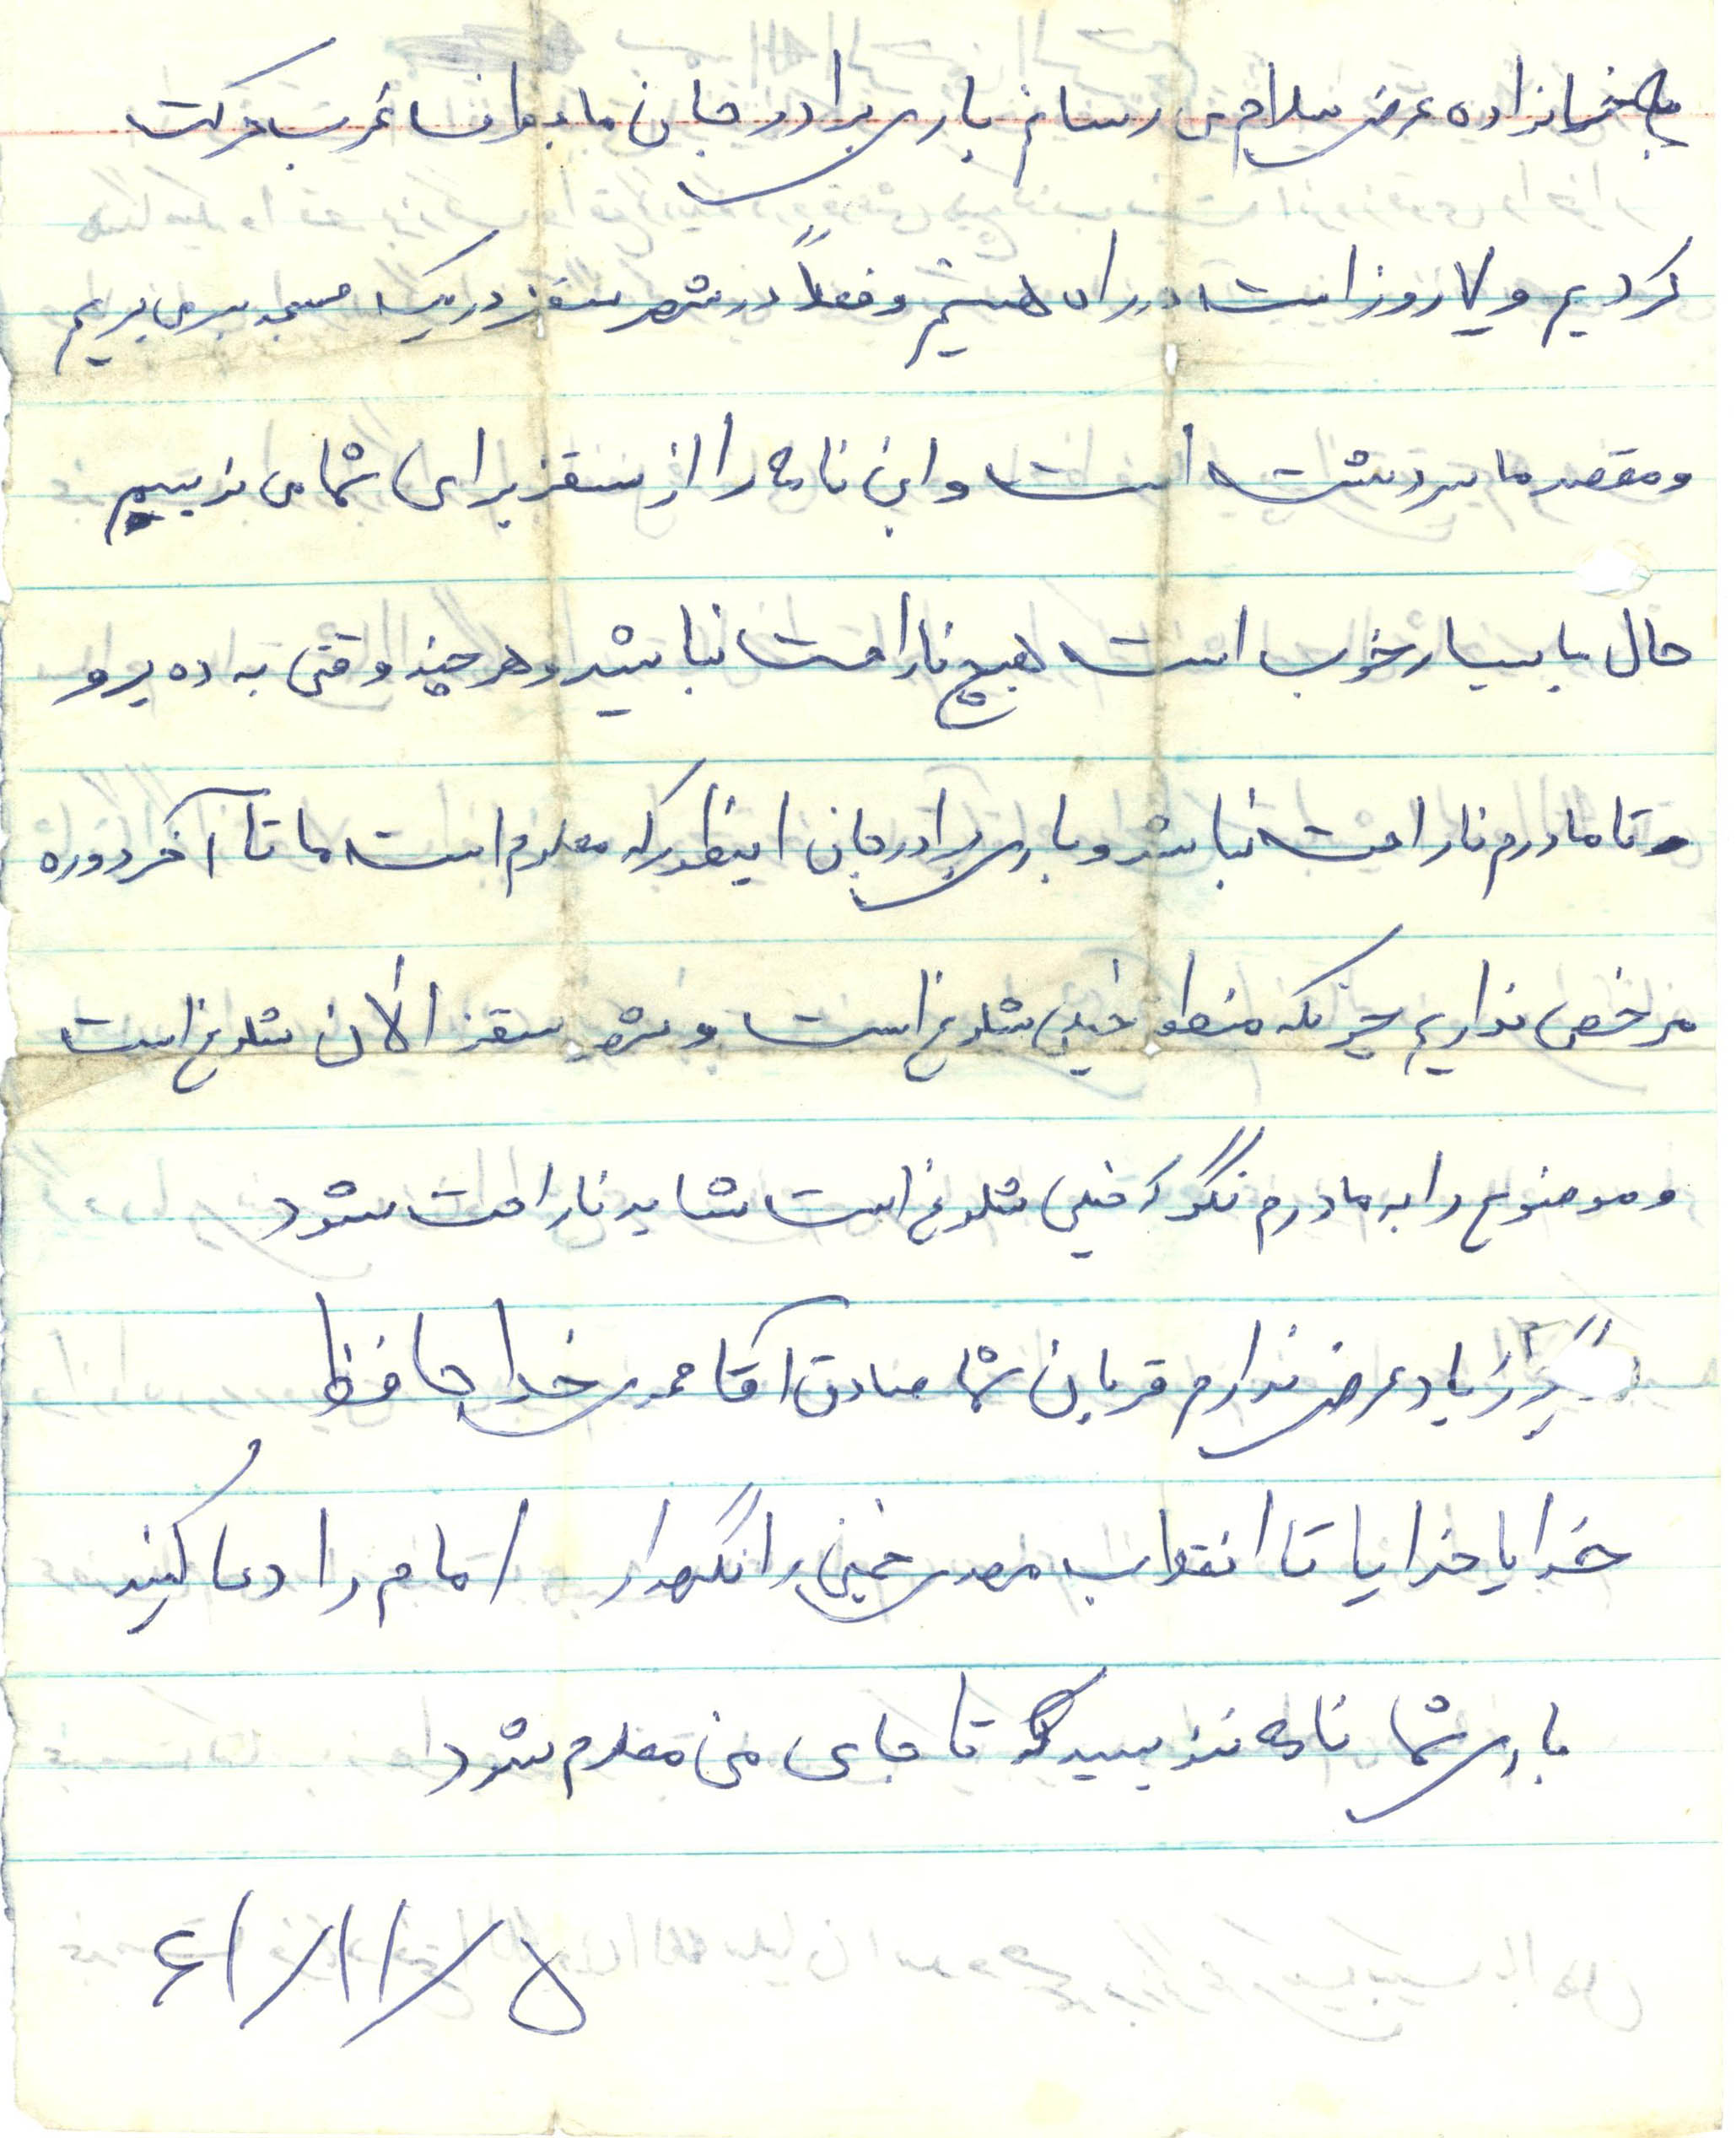 با خانواده عرض سلام می رسانم باری برادر جان ما به طرف غرب حرکت
کردیم و ۷ روز است در راه هستیم و فعلاً در شهر سقز در یک مسجد بسر می بریم
و مقصد ما سردشت است و این نامه را از سقز برای شما می نویسیم
حال ما بسیار خوب است هیچ ناراحت نباشید و هر چند وقتی به ده برو
و تا مادرم ناراحت نباشد و باری برادر جان اینطور که معلوم است ما تا آخر دوره
مرخصی نداریم چونکه منطقه خیلی شلوغ است و شهر سقز الان شلوغ است
و موضوع را به مادرم نگو که خیلی شلوغ است شاید ناراحت شود
دیگر زیاد عرضی ندارم قربان شما صادق آقامحمدی خدا حافظ
خدایا خدایا تا انقلاب مهدی خمینی را نگهدار امام را دعا کنید
باری شما نامه ننویسید تا جای من معلوم شود
۶۱/۱۱/۵